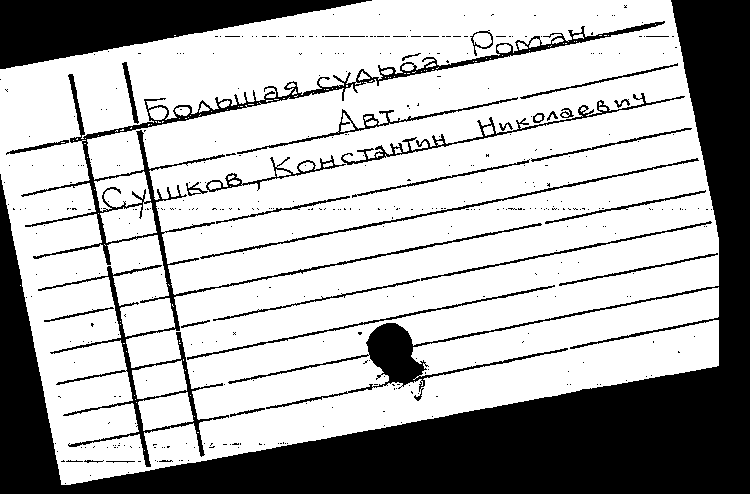 Большая судьба. Роман.
Авт.:
Сушков, Константин Николаевич